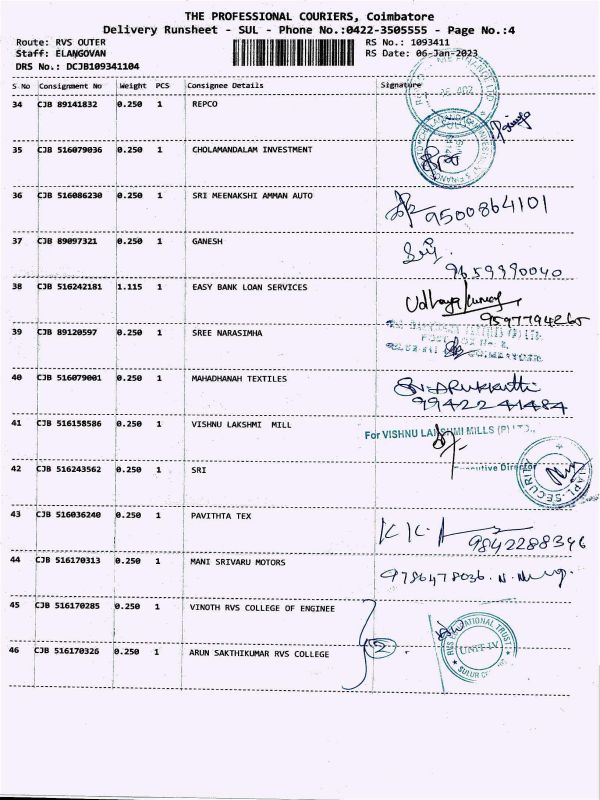 THE PROFESSIONAL COURIERS, Coimbatore
Delivery Runsheet - SUL - Phone No.:0422-3505555 - Page No.:4
Route: RVS OUTER RS No.: 1093411
Staff: ELANGOVAN RS Date: 06-Jan-2023
DRS No.: DCJB109341104
S No Consignment No Weight PCS Consignee Details Signature
34 CJB 89141832 0.250 1 REPCO
35 CJB 516079036 0.250 1 CHOLAMANDALAM INVESTMENT
36 CJB 516086230 0.250 1 SRI MEENAKSHI AMMAN AUTO
9500864101
37 CJB 89097321 0.250 1 GANESH
9659990040
38 CJB 516242181 1.115 1 EASY BANK LOAN SERVICES
Udhayakumar
9597794265
39 CJB 89120597 0.250 1 SREE NARASIMHA
40 CJB 516079001 0.250 1 MAHADHANAH TEXTILES
9942241484
41 CJB 516158586 0.250 1 VISHNU LAKSHMI MILL
For VISHNU LAKSHMI MILLS (P) LTD.,
Executive Director
42 CJB 516243562 0.250 1 SRI
SECURITY
43 CJB 516036240 0.250 1 PAVITHTA TEX
9842288396
44 CJB 516170313 0.250 1 MANI SRIVARU MOTORS
9786478036
45 CJB 516170285 0.250 1 VINOTH RVS COLLEGE OF ENGINEE
2
46 CJB 516170326 0.250 1 ARUN SAKTHIKUMAR RVS COLLEGE
RVS EDUCATIONAL TRUST
UNIT-IV
SULUR